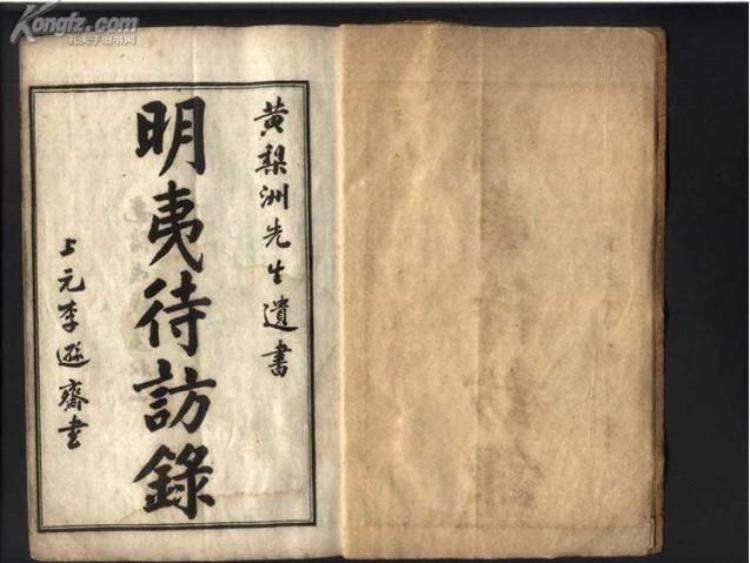 Kongfz.com
孔夫子旧书网
黃梨洲先生遺書
明夷待訪錄
上元李遜齋書